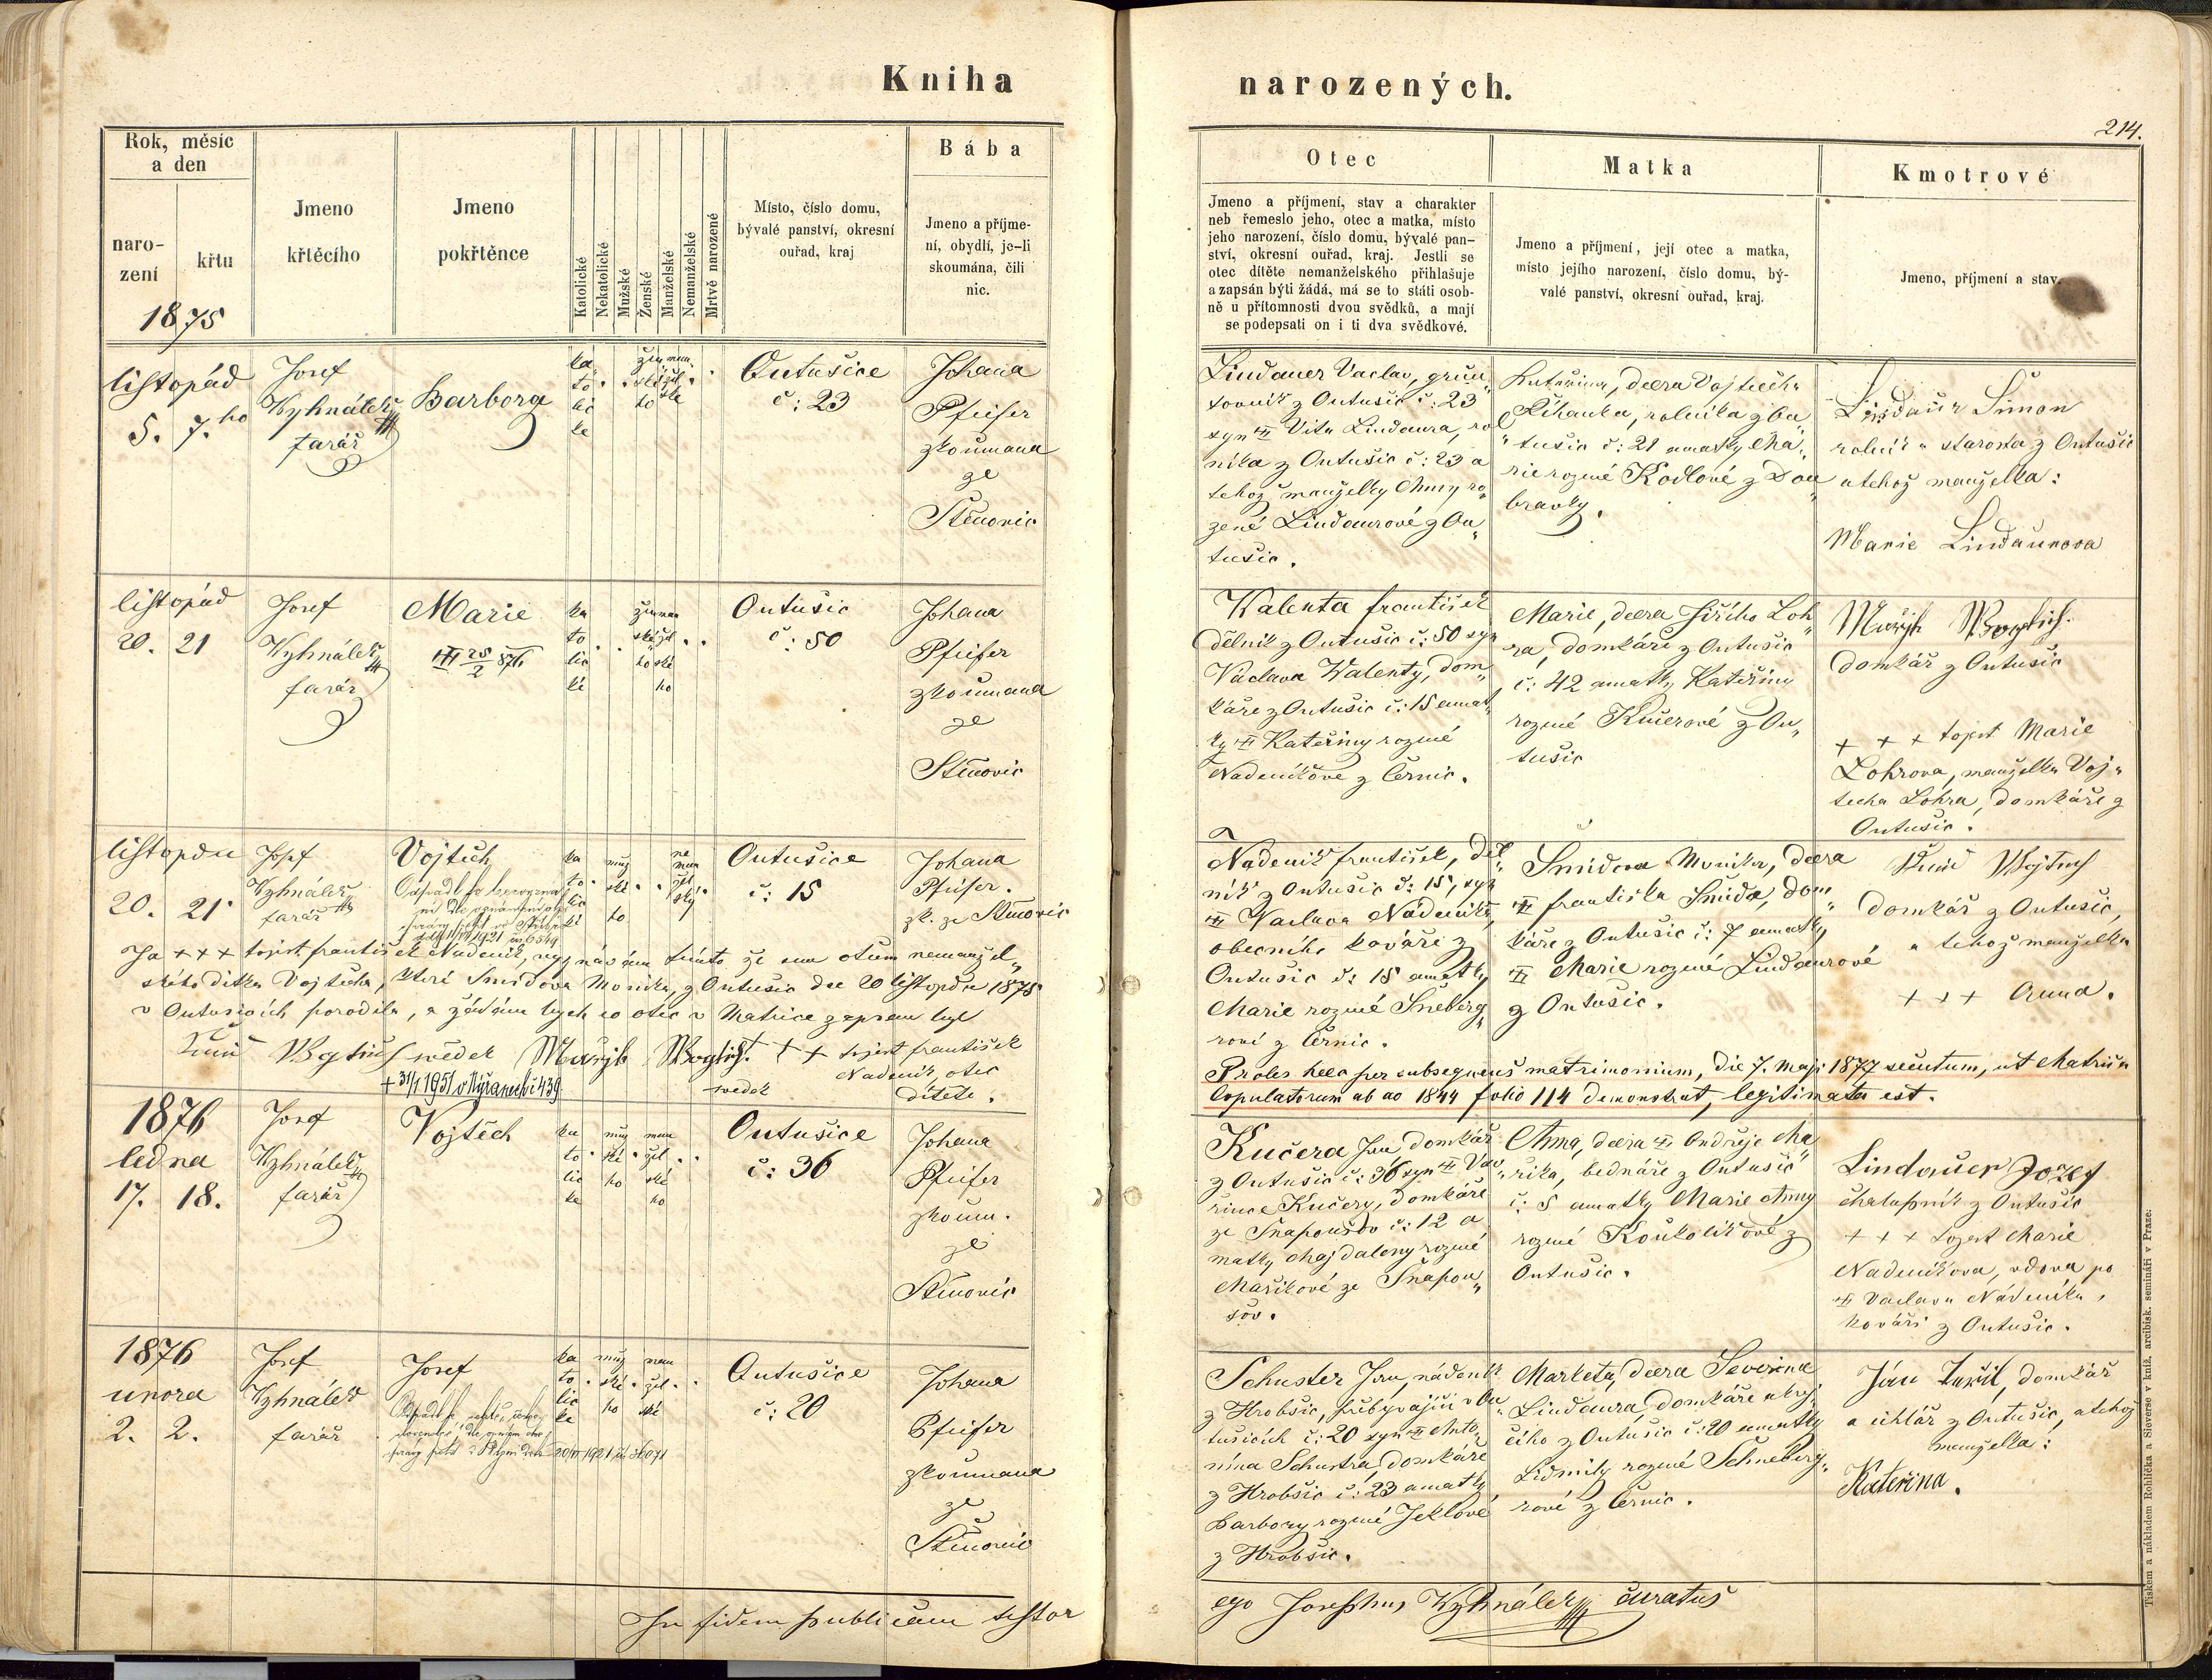 Kniha
narozených.
214.
Rok, měsíc
a den
naro-
zení
křtu
1875
Jmeno
křtěcího
Jmeno
pokřtěnce
Katolické
Nekatolické
Mužské
Ženské
Manželské
Nemanželské
Mrtvě narozené
Místo, číslo domu,
bývalé panství, okresní
ouřad, kraj
Bába
Jmeno a příjme-
ní, obydlí, je-li
skoumána, čili
nic.
Otec
Jmeno a příjmení, stav a charakter
neb řemeslo jeho, otec a matka, místo
jeho narození, číslo domu, bývalé pan-
ství, okresní ouřad, kraj. Jestli se
otec dítěte nemanželského přihlašuje
a zapsán býti žádá, má se to státi osob-
ně u přítomnosti dvou svědků, a mají
se podepsati on i ti dva svědkové.
Matka
Jmeno a příjmení, její otec a matka,
místo jejího narození, číslo domu, bý-
valé panství, okresní ouřad, kraj.
Kmotrové
Jmeno, příjmení a stav.
listopád
5. 7.ho
Josef
Wyhnálek
farář
Barbora
ka
to
lic
ke
Outušice
č: 23
Johana
Pfeifer
zkoumana
ze
Stěnovic
Lindauer Vaclav, grun„
tovník z Outušic č: 23
syn Vita Lindaura, rol
níka z Outušic č: 23 a
tehož manželky Anny ro„
zené Lindaurové z Ou„
tušic.
Kateřina, dcera Vojtěcha
Říhanka, rolníka z Ou„
tušic č: 21 a matky Ma„
rie rozené Kodlové z Dou„
bravky.
Lindaur Šimon
rolník a starosta z Outušic
a tehož manželka:
Marie Lindaurova
listopád
20. 21
Josef
Wyhnálek
farář
Marie
25/2 876
ka
to
lic
ké
Outušic
č: 50
Johana
Pfeifer
zkoumana
ze
Stěnovic
Walenta František
dělník z Outušic č: 50 syn
Václava Walenty, dom„
káře z Outušic č: 15 a mat„
ky Kateřiny rozené
Nadeníkove z Černic.
Marie, dcera Jiřího Loh„
ra, domkáře z Outušic
č: 42 a matky Kateřiny
rozené Kučerové z Ou„
tušic
domkář z Outušic
+ + + tojest Marie
Lohrova, manželka Voj„
těcha Lohra, domkáře z
Outušic.
listopdu
20. 21
Josef
Wyhnálek
farář
Vojtěch
ka
to
lic
ké
Outušice
č: 15
Johana
Pfeifer.
zk. ze Stěnovic
Nadeník František, děl„
ník z Outušic č: 15, syn
Vaclava Nadeníka,
obecního kováře z
Outušic č: 15 a matky
Marie rozené Šneberg„
rové z Černic.
Šmidova Monika, dcera
Františka Šmida, dom„
káře z Outušic č: 7 a matky
Marie rozené Lindaurové
z Outušic.
domkář z Outušic,
a tehož manželka
+ + + Anna.
Ja + + + tojest František Nadeník, vyznávám tímto že sem otcem nemanžel„
ského dítka Vojtěcha, které Smidova Monika, z Outušic dne 20 listopdu 1875
v Outusicích porodila, a žádám bych co otec v Matrice zapsan byl
svědek
svědek
+ + + tojest František
Nadeník, otec
dítěte.
Proles haec per subsequens matrimonium, die 7. maji 1877 secutum, ut Matrica
Copulatorum ab ao 1844 folio 114 demonstrat, legitimata est.
+ 31/1 1951 v Nýřanech č 439.
1876
ledna
17. 18.
Josef
Wyhnálek
farář
Vojtěch
ka
to
lic
ke
Outušice
č: 36
Johana
Pfeifer
zkoum.
ze
Stěnovic
Kučera Jan domkář
z Outušic č: 36 syn Vav„
řince Kučery, domkáře
ze Šnapoušov č: 12 a
matky Majdaleny rozené
Mašikové ze Šnapou„
šov.
Anna, dcera Ondřeje Ma„
řika, bednáře z Outušic
č: 5 a matky Marie Anny
rozené Koukolíkové z
Outušic.
Lindauer Jozef
chalupník z Outušic
+ + + tojest Marie
Nadeníkova, vdova po
Vaclavu Nádeníku,
kováři z Outušic.
1876
unora
2. 2.
Josef
Wyhnálek
farář
Josef
ka
to
lic
ke
Outušice
č: 20
Johana
Pfeifer
zkoumana
ze
Stěnovic
Schuster Jan, nádeník
z Hrobšic, přebývající v Ou„
tušicích č: 20 syn Anto„
nína Schustra, domkáře
z Hrobšic č: 23 a matky
Barbory rozené Jeklové
z Hrobšic.
Marketa, dcera Severina
Lindaura, domkáře a krej„
čího z Outušic č: 20 a matky
Lidmily rozené Schneberg„
rové z Černic.
domkář
a uhlář z Outušic, a tehož
manželka:
Kateřina.
In fidem publicam testor
ego Josephus Wyhnálek curatus
Tiskem a nákladem Rohlíčka a Sieverse v kníž. arcibisk. semináři v Praze.